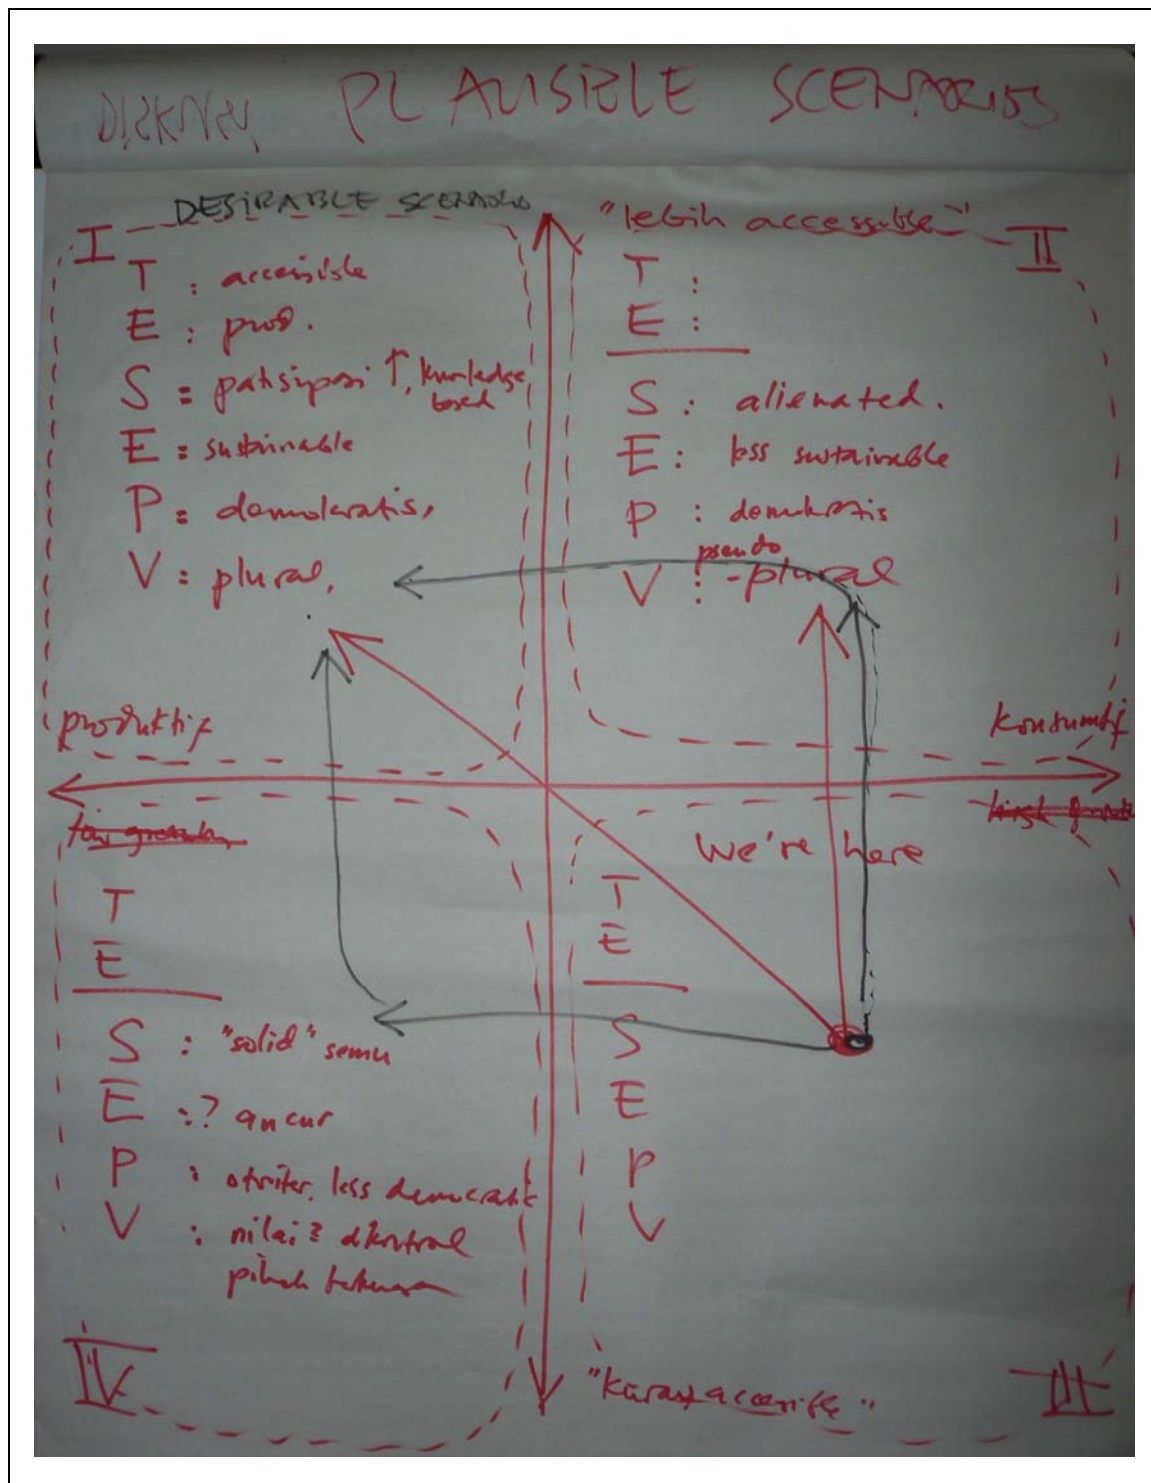 PLAUSIBLE SCENARIOS
DESIRABLE SCENARIO
"lebih accessible"
I
II
T : accessible
E : prod.
S : patisipasi ↑, knowledge based
E : sustainable
P : demokratis,
V : plural,
T :
E :
S : alienated.
E : less sustainable
P : demokratis
V : pseudo-plural
produktif
konsumtif
We're here
T
E
S : "solid" semu
E : ? ancur
P : otriter, less democratic
V : nilai² dikontrol
pihak
T
E
S
E
P
V
IV
"Kurang accessible"
III